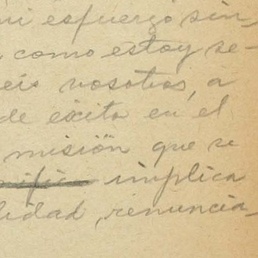 mi esfuerzo sin,
como estoy se-
eis vosotros, a
de éxito en el
misión que se
implica
lidad, renuncia-